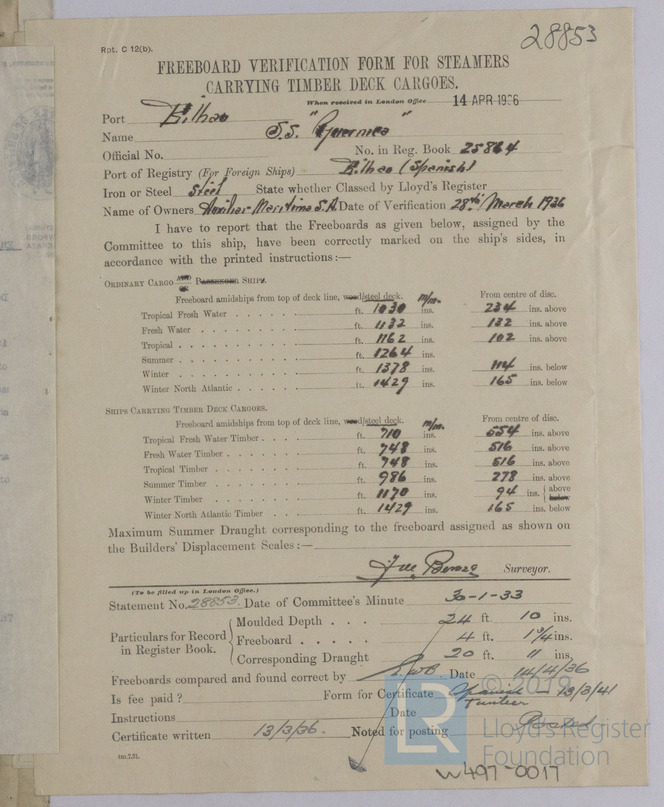 28853
Rpt. C 12(b).
FREEBOARD VERIFICATION FORM FOR STEAMERS
CARRYING TIMBER DECK CARGOES.
When received in London Office 14 APR 1936
Port Bilbao
Name S.S. "Guernica"
Official No. No. in Reg. Book 25864
Port of Registry (For Foreign Ships) Bilbao (Spanish)
Iron or Steel Steel State whether Classed by Lloyd's Register
Name of Owners Auxiliar Maritima S.A. Date of Verification 28th March 1936
I have to report that the Freeboards as given below, assigned by the
Committee to this ship, have been correctly marked on the ship's sides, in
accordance with the printed instructions:—
ORDINARY CARGO AND PASSENGER SHIPS.
Freeboard amidships from top of deck line, wood/steel deck. m/m. From centre of disc.
Tropical Fresh Water ft. 1030 ins. 234 ins. above
Fresh Water ft. 1132 ins. 132 ins. above
Tropical ft. 1162 ins. 102 ins. above
Summer ft. 1264 ins.
Winter ft. 1378 ins. 114 ins. below
Winter North Atlantic ft. 1429 ins. 165 ins. below
SHIPS CARRYING TIMBER DECK CARGOES.
Freeboard amidships from top of deck line, wood/steel deck. m/m. From centre of disc.
Tropical Fresh Water Timber ft. 710 ins. 554 ins. above
Fresh Water Timber ft. 748 ins. 516 ins. above
Tropical Timber ft. 748 ins. 516 ins. above
Summer Timber ft. 986 ins. 278 ins. above
Winter Timber ft. 1170 ins. 94 ins. { above below
Winter North Atlantic Timber ft. 1429 ins. 165 ins. below
Maximum Summer Draught corresponding to the freeboard assigned as shown on
the Builders' Displacement Scales:—
Surveyor.
(To be filled up in London Office.)
Statement No. 28853 Date of Committee's Minute 30-1-33
Particulars for Record in Register Book. { Moulded Depth 24 ft. 10 ins.
Freeboard 4 ft. 1¾ ins.
Corresponding Draught 20 ft. 11 ins.
Freeboards compared and found correct by Date 14/4/36
Is fee paid? Form for Certificate Spanish 13/3/41
Instructions Date
Certificate written 13/3/36. Noted for posting Posted
1m.7.31.
© 2019
LR
Lloyd's Register
Foundation
W497-0017